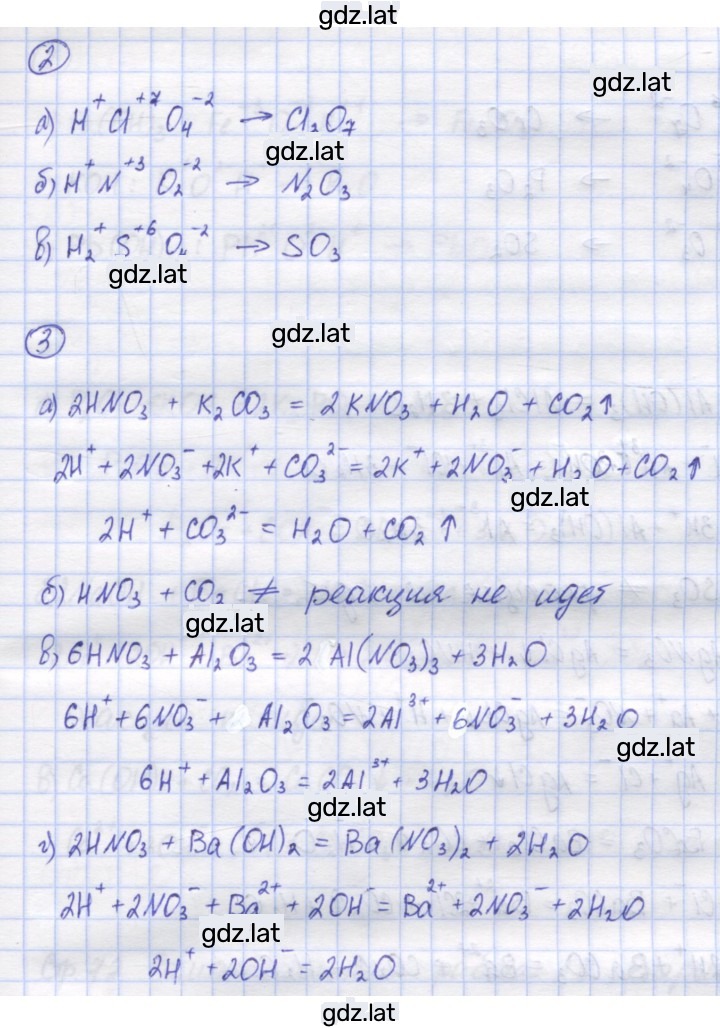 gdz.lat
②
gdz.lat
а) H⁺Cl⁺⁷O₄⁻² → Cl₂O₇
gdz.lat
б) H⁺N⁺³O₂⁻² → N₂O₃
в) H₂⁺S⁺⁶O₄⁻² → SO₃
gdz.lat
③
gdz.lat
а) 2HNO₃ + K₂CO₃ = 2KNO₃ + H₂O + CO₂↑
2H⁺ + 2NO₃⁻ + 2K⁺ + CO₃²⁻ = 2K⁺ + 2NO₃⁻ + H₂O + CO₂↑
gdz.lat
2H⁺ + CO₃²⁻ = H₂O + CO₂↑
б) HNO₃ + CO₂ ≠ реакция не идет
gdz.lat
в) 6HNO₃ + Al₂O₃ = 2Al(NO₃)₃ + 3H₂O
6H⁺ + 6NO₃⁻ + Al₂O₃ = 2Al³⁺ + 6NO₃⁻ + 3H₂O
gdz.lat
6H⁺ + Al₂O₃ = 2Al³⁺ + 3H₂O
gdz.lat
г) 2HNO₃ + Ba(OH)₂ = Ba(NO₃)₂ + 2H₂O
2H⁺ + 2NO₃⁻ + Ba²⁺ + 2OH⁻ = Ba²⁺ + 2NO₃⁻ + 2H₂O
gdz.lat
2H⁺ + 2OH⁻ = 2H₂O
gdz.lat